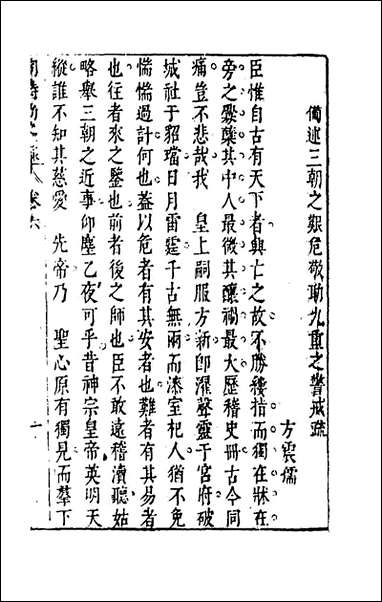 備述三朝之艱危敬助九重之警戒疏
方震儒
臣惟自古有天下者興亡之故不勝縷指而獨在牀在
旁之釁蘖其中人最微其釀禍最大歷稽史冊古今同
痛豈不悲哉我 皇上嗣服方新即濯聲靈于宮府破
城社于貂璫日月雷霆千古無兩而漆室杞人猶不免
惴惴過計何也蓋以危者有其安者也難者有其易者
也往者來之鑒也前者後之師也臣不敢遠稽瀆聽姑
略舉三朝之近事仰塵乙夜可乎昔神宗皇帝英明天
縱誰不知其慈愛 先帝乃 聖心原有獨見而羣下
卷六 一